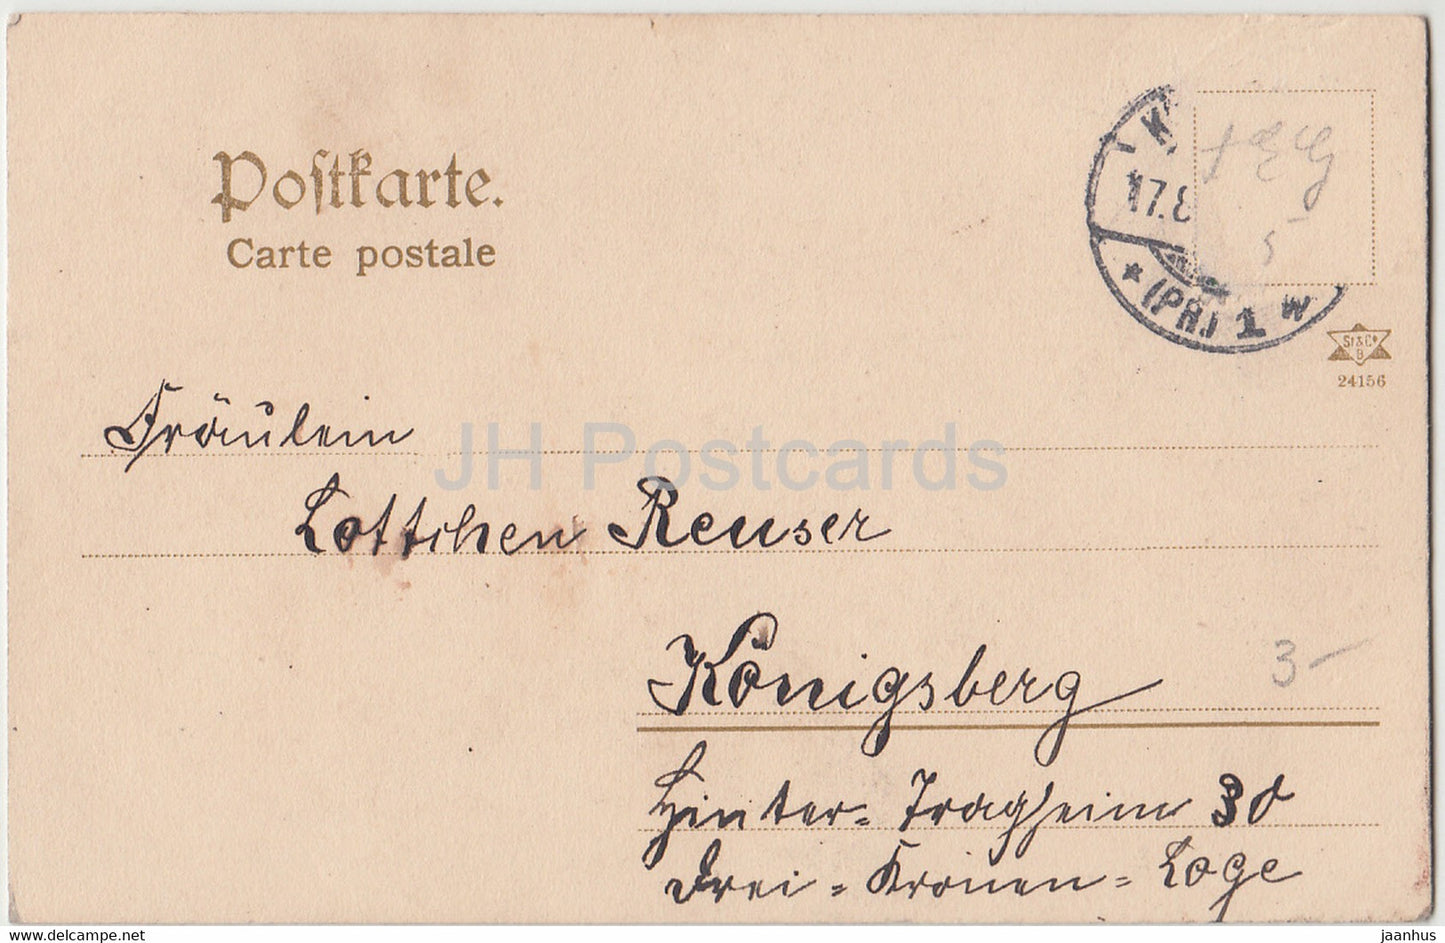 Postkarte.
Carte postale
K.
17.8
* (PR.) 1 W
St & Co
B
24156
5
Fräulein
Lottchen Reuser
Königsberg
3-
Hinter-Tragheim 30
Drei-Kronen-Loge
JH Postcards
www.delcampe.net
jaanhus